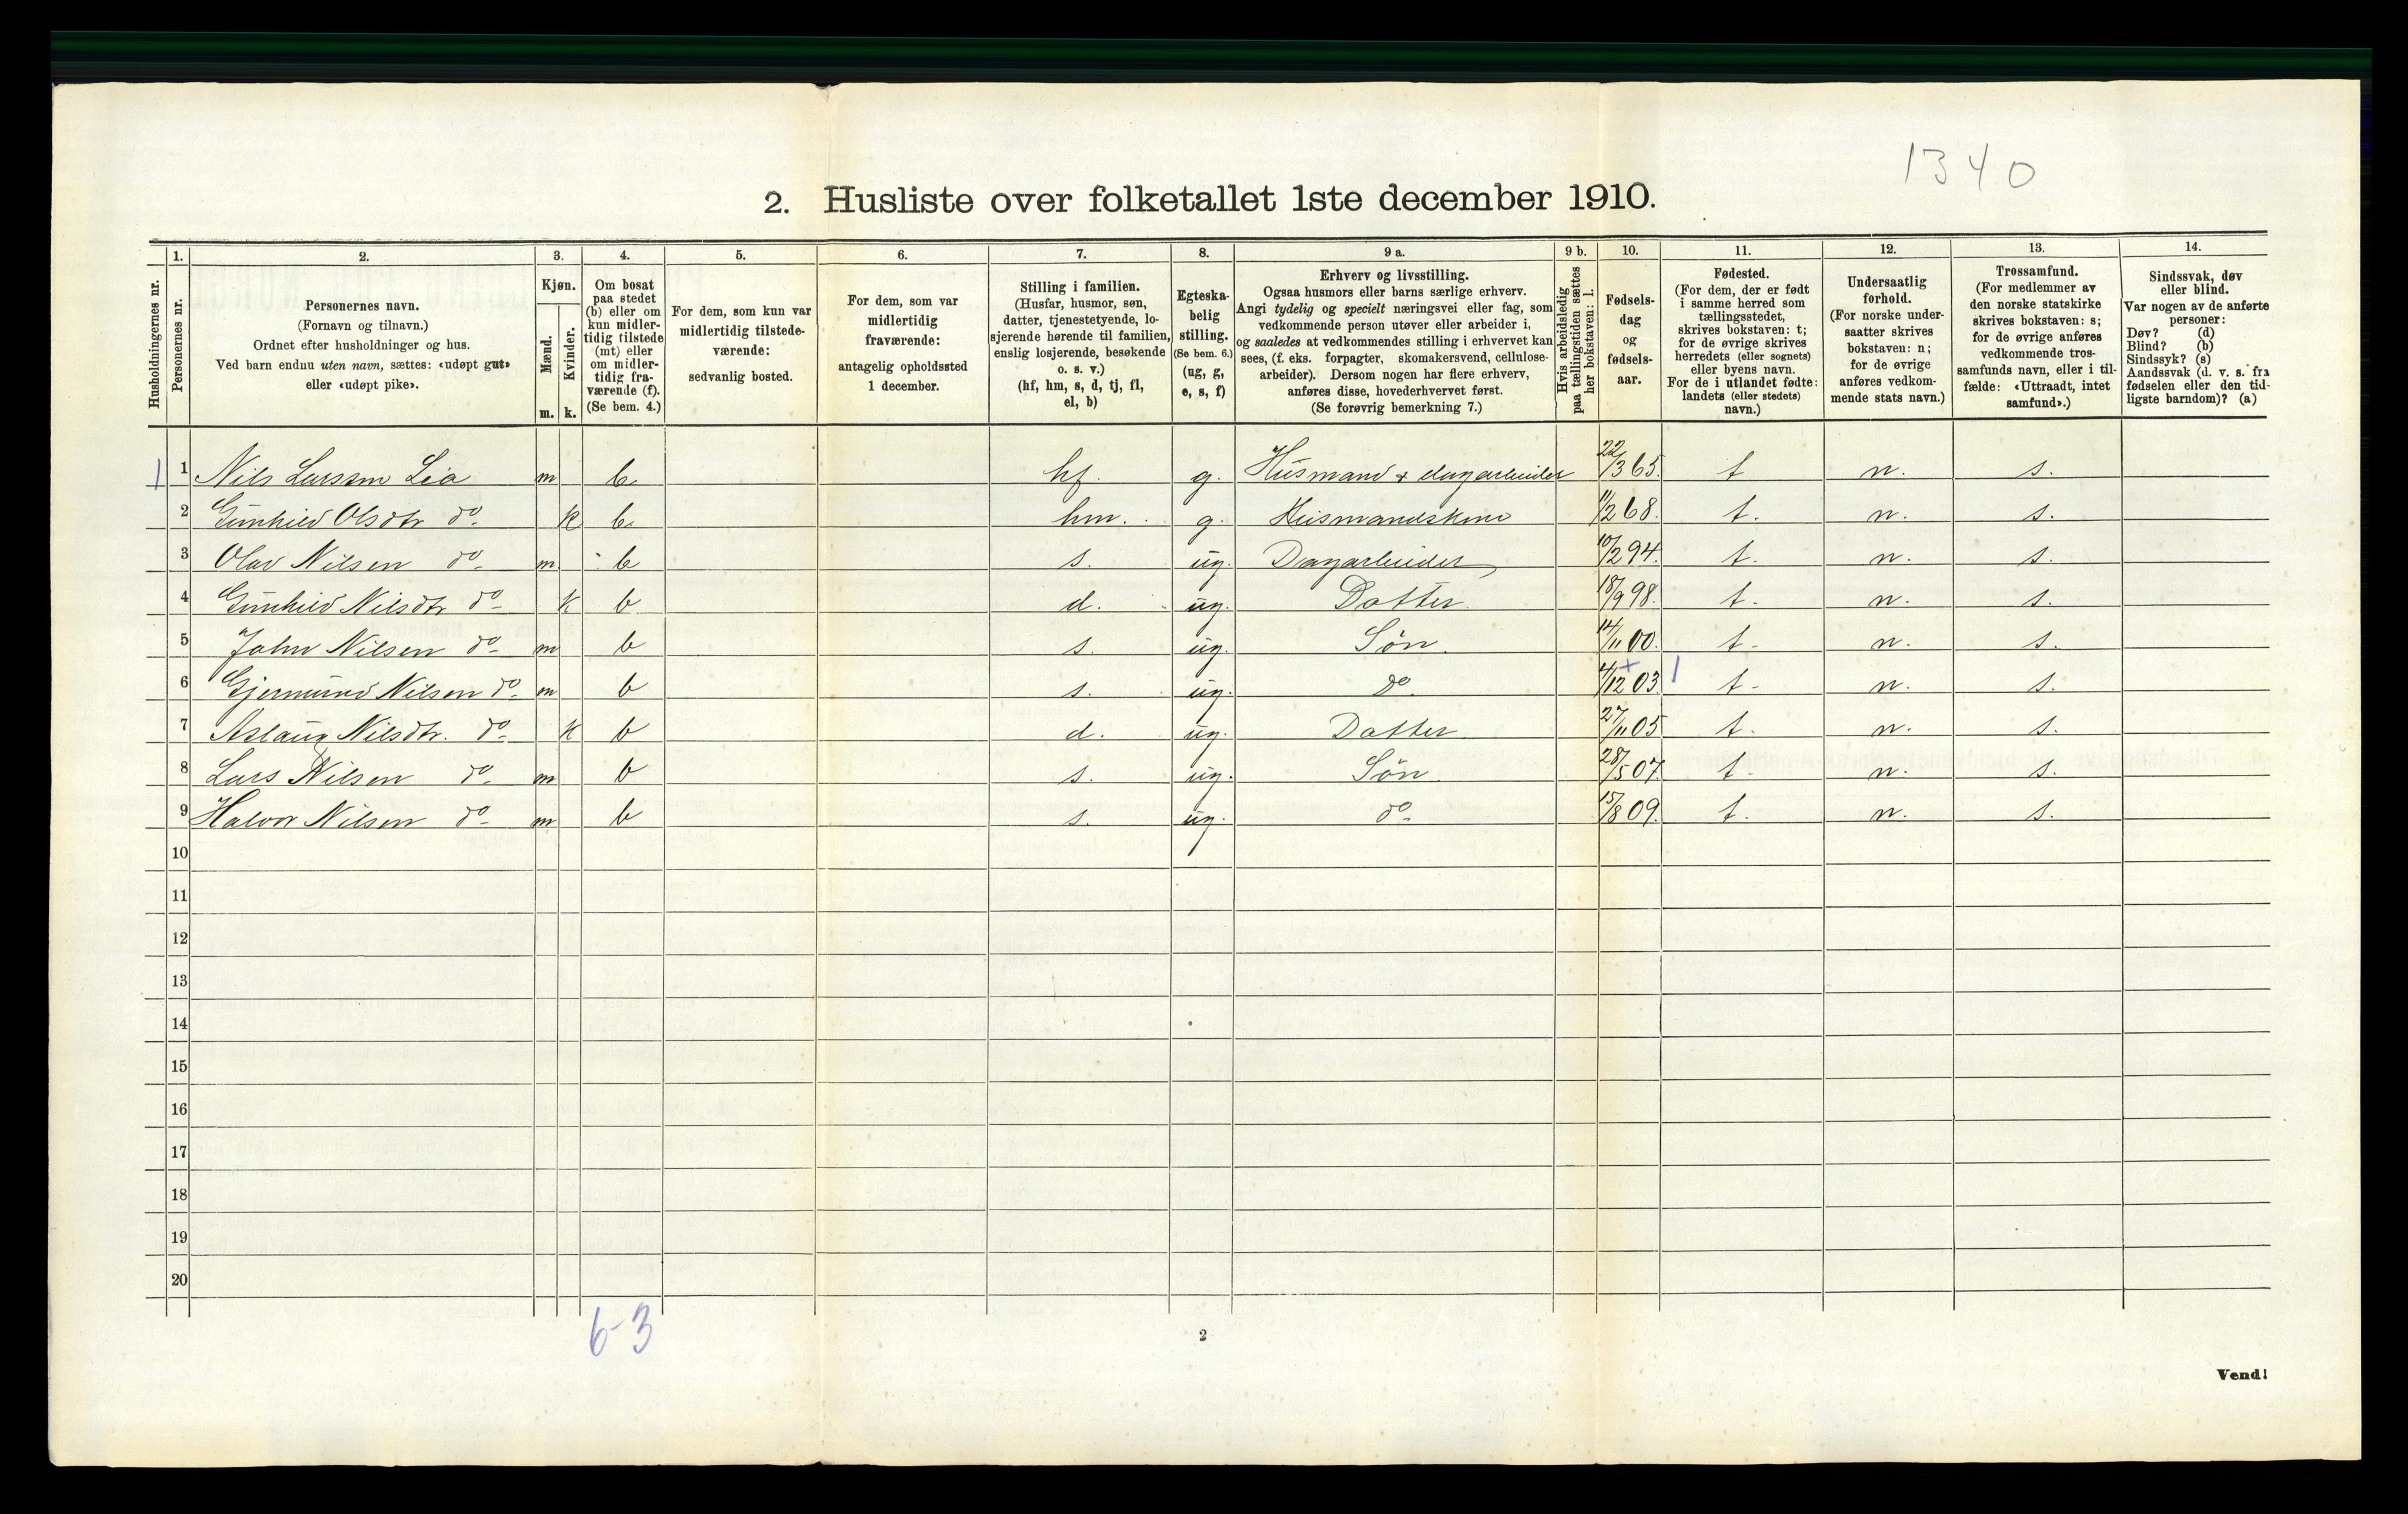 1340
2. Husliste over folketallet 1ste december 1910.
Husholdningernes nr.
1.
Personernes nr.
2.
Personernes navn.
(Fornavn og tilnavn.)
Ordnet efter husholdninger og hus.
Ved barn endnu uten navn, sættes: «udøpt gut»
eller «udøpt pike».
3.
Kjøn.
Mænd.
m.
Kvinder.
k.
4.
Om bosat
paa stedet
(b) eller om
kun midler-
tidig tilstede
(mt) eller
om midler-
tidig fra-
værende (f).
(Se bem. 4.)
5.
For dem, som kun var
midlertidig tilstede-
værende:
sedvanlig bosted.
6.
For dem, som var
midlertidig
fraværende:
antagelig opholdssted
1 december.
7.
Stilling i familien.
(Husfar, husmor, søn,
datter, tjenestetyende, lo-
sjerende hørende til familien,
enslig losjerende, besøkende
o. s. v.)
(hf, hm, s, d, tj, fl,
el, b)
8.
Egteska-
belig
stilling.
(Se bem. 6.)
(ug, g,
e, s, f)
9 a.
Erhverv og livsstilling.
Ogsaa husmors eller barns særlige erhverv.
Angi tydelig og specielt næringsvei eller fag, som
vedkommende person utøver eller arbeider i,
og saaledes at vedkommendes stilling i erhvervet kan
sees, (f. eks. forpagter, skomakersvend, cellulose-
arbeider). Dersom nogen har flere erhverv,
anføres disse, hovederhvervet først.
(Se forøvrig bemerkning 7.)
9 b.
Hvis arbeidsledig
paa tællingstiden sættes
her bokstaven: l.
10.
Fødsels-
dag
og
fødsels-
aar.
11.
Fødested.
(For dem, der er født
i samme herred som
tællingsstedet,
skrives bokstaven: t;
for de øvrige skrives
herredets (eller sognets)
eller byens navn.
For de i utlandet fødte:
landets (eller stedets)
navn.)
12.
Undersaatlig
forhold.
(For norske under-
saatter skrives
bokstaven: n;
for de øvrige
anføres vedkom-
mende stats navn.)
13.
Trossamfund.
(For medlemmer av
den norske statskirke
skrives bokstaven: s;
for de øvrige anføres
vedkommende tros-
samfunds navn, eller i til-
fælde: «Uttraadt, intet
samfund».)
14.
Sindssvak, døv
eller blind.
Var nogen av de anførte
personer:
Døv? (d)
Blind? (b)
Sindssyk? (s)
Aandssvak (d. v. s. fra
fødselen eller den tid-
ligste barndom)? (a)
1 1 Nils Larssen Lia m b. hf. g. Husmand & dagarbeider 22/3 65. t n. s.
2 Gunhild Olsdtr do. k b. hm. g. Husmandskone 11/2 68. t. n. s.
3 Olav Nilsen do. m. b s. ug. Dagarbeider 10/2 94. t. n. s.
4 Gunhild Nilsdtr do. k b d. ug. Datter 18/9 98. t. n. s.
5 John Nilsen do. m b s. ug. Søn. 14/11 00. t. n. s.
6 Gjermund Nilsen do. m b s. ug. do. 4/12 03. + 1 t. n. s.
7 Aslaug Nilsdtr. do. k b d. ug. Datter 27/11 05 t. n. s.
8 Lars Nilsen do. m b s. ug. Søn. 28/5 07. t. n. s.
9 Halvor Nilsen do. m b s. ug. do. 15/8 09. t. n. s.
10
11
12
13
14
15
16
17
18
19
20
6-3
2
Vend!